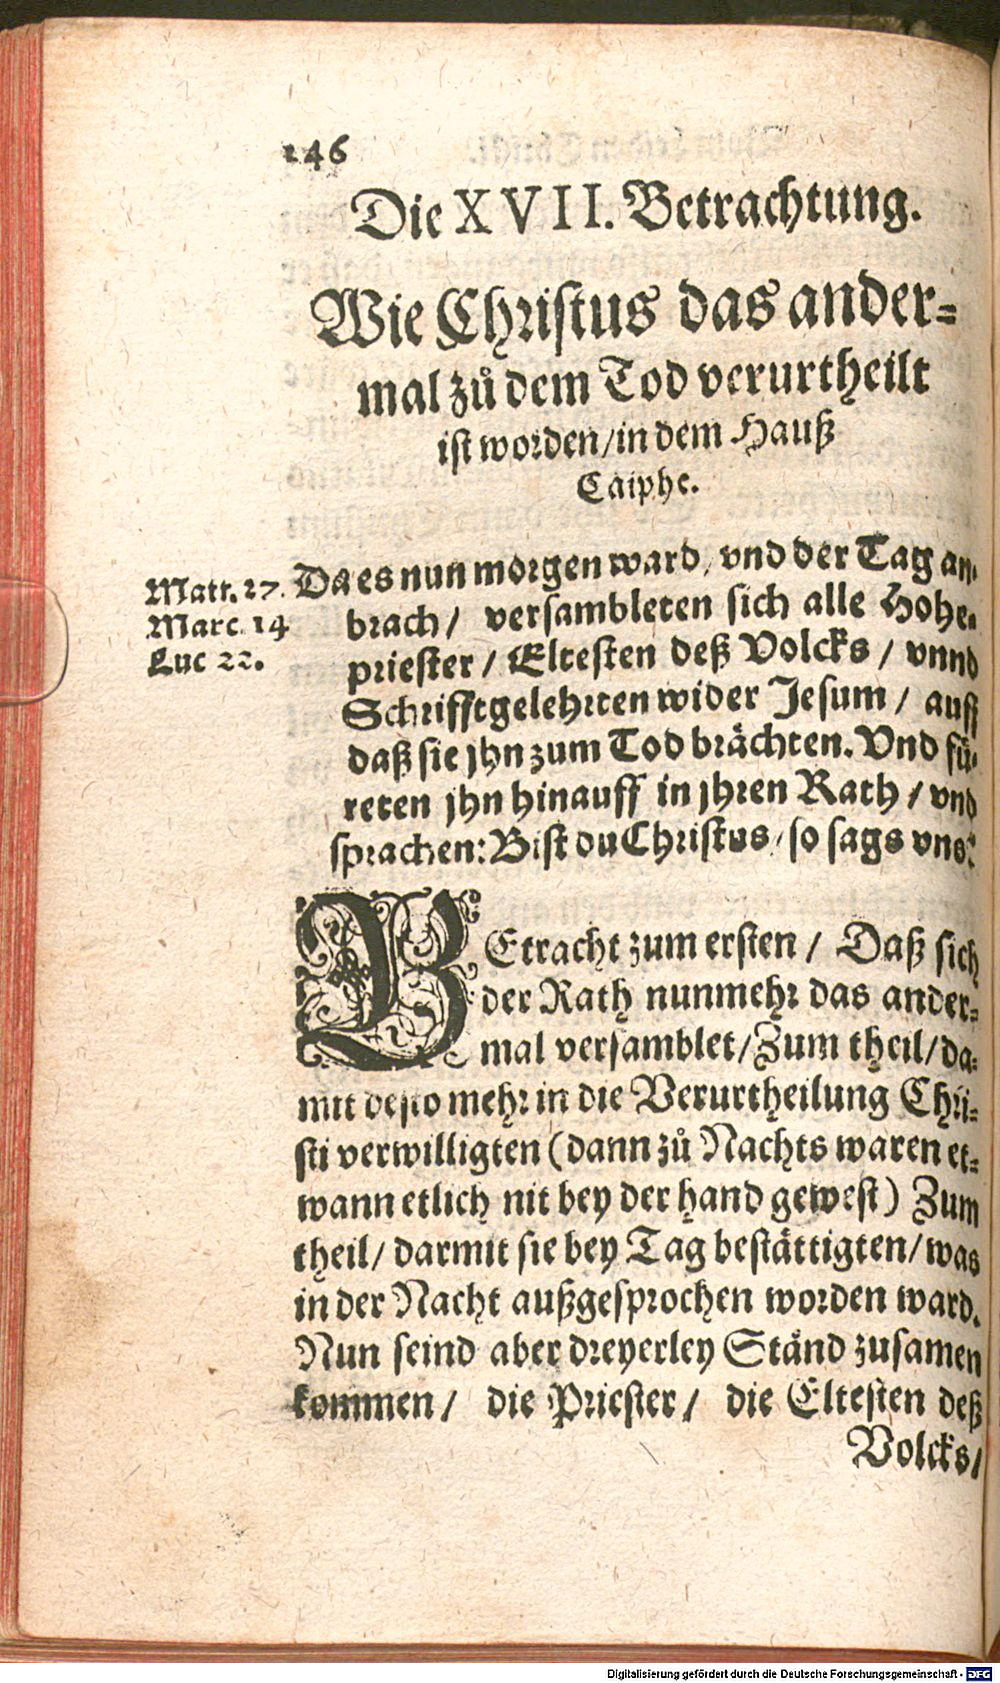 146
Die XVII. Betrachtung.
Wie Christus das ander=
mal zuͦ dem Tod verurtheilt
ist worden/in dem Hauß
Caiphe.
Matt. 27.
Marc. 14
Luc 22.
Da es nun morgen ward, vnd der Tag an=
brach/ versambleten sich alle Hohe=
priester/ Eltesten deß Volcks/ vnnd
Schrifftgelehrten wider Jesum/ auff
daß sie jhn zum Tod brächten. Vnd fü=
reten jhn hinauff in jhren Rath/ vnd
sprachen: Bist du Christus/ so sags vns:
BEtracht zum ersten/ Daß sich
der Rath nunmehr das ander=
mal versamblet/Zum theil/da=
mit desto mehr in die Verurtheilung Chri=
sti verwilligten (dann zuͦ Nachts waren et=
wann etlich nit bey der hand gewest) Zum
theil/ darmit sie bey Tag bestättigten/was
in der Nacht außgesprochen worden ward.
Nun seind aber dreyerley Ständ zusamen
kommen/ die Priester/ die Eltesten deß
Volcks/
Digitalisierung gefördert durch die Deutsche Forschungsgemeinschaft - DFG